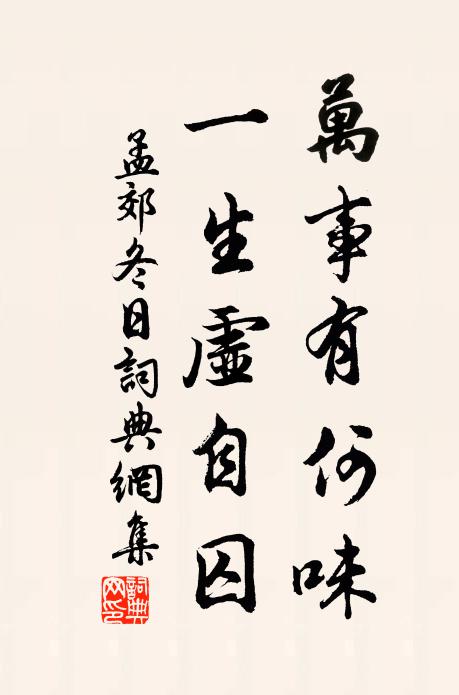 萬事有何味
一生虛自囚
孟郊冬日詞典網集
詞典
網印